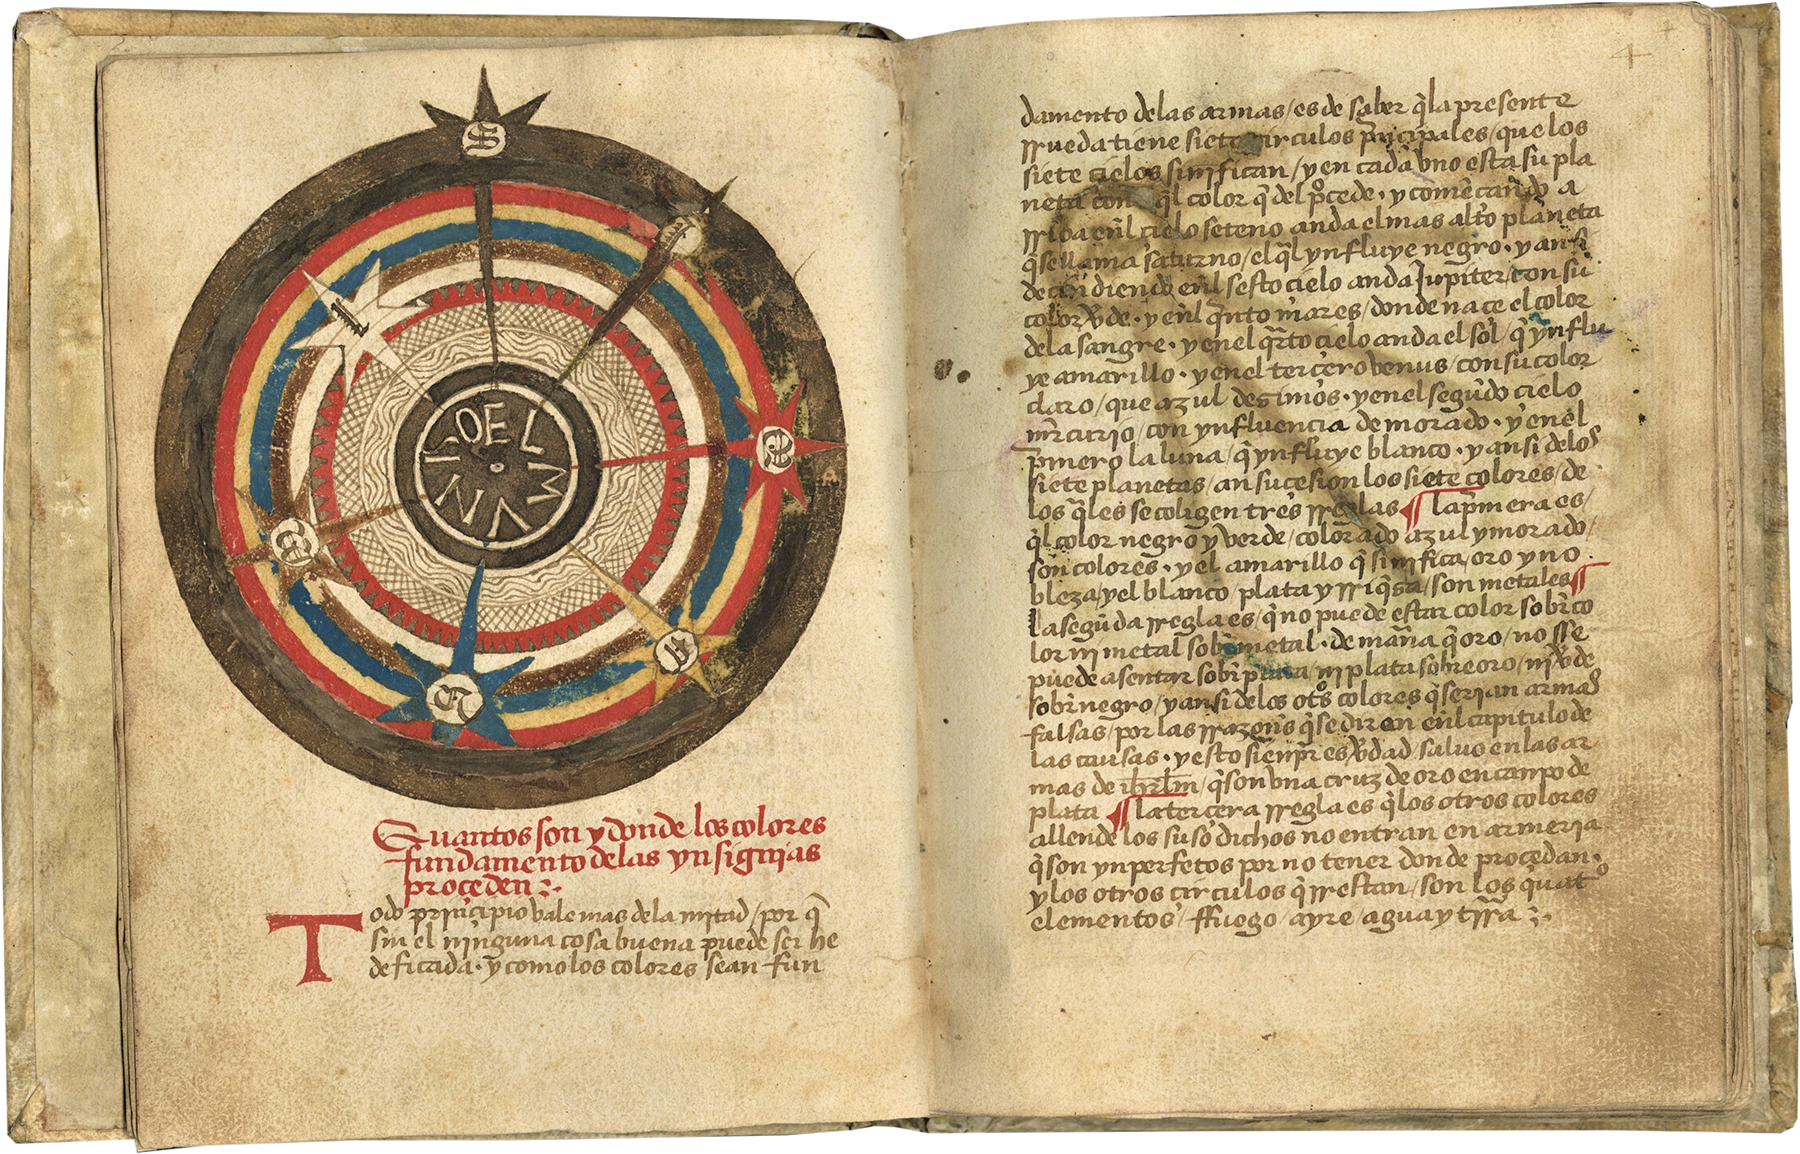 S
DEL MVNDO
Quantos son y donde los colores
fundamento delas ynsignias
proçeden
Todo prinçipio vale mas dela mitad / por q̃
sin el ninguna cosa buena puede ser he
deficada · y como los colores sean fun
4
damento delas armas / es de saber q̃ la presente
rrueda tiene siete circulos prinçipales / que los
siete çielos sinifican / y en cada vno esta su pla
neta con el q̃l color q̃ del proçede · y comẽcando a
rriba en̄l çielo seteno anda el mas alto planeta
q̃ se llama saturno / el q̃l ynfluye negro · y ansi
deçindiendo en̄l sesto çielo anda Jupiter / con su
color v̄de · y en̄l q̃nto mares / donde naçe el color
dela sangre · y en el q̃rto çielo anda el sol / q̃ ynflu
ye amarillo · y en el terçero venus con su color
claro / que azul deçimos · y en el segũdo çielo
mr̃curio / con ynfluençia de morado · y en el
p̃mero la luna / q̃ ynfluye blanco · y ansi delos
siete planetas / an suçesion los siete colores / de
los q̃les se coligen tres rreglas ¶ la p̃mera es /
q̃l color negro y verde / colorado azul y morado /
son colores · y el amarillo q̃ sinifica / oro y no
bleza / y el blanco plata y rriq̃za / son metales ¶
la segũda rregla es / q̃ no puede estar color sobr̃ co
lor ni metal sobr̃ metal · de mañā q̃ oro / no sse
puede asentar sobr̃ plata / ni plata sobre oro / ni v̄de
sobr̃ negro / y ansi delos ot̊s colores q̃ serian armas
falsas / por las rrazones q̃ se diran en̄l capitulo de
las causas · y esto sienpr̃ es v̄dad saluo en las ar
mas de ihrl̃m / q̃ son vna cruz de oro en canpo de
plata ¶ la terçera rregla es q̃ los otros colores
allende los suso dichos no entran en armeria
q̃ son ynperfetos por no tener donde proçedan ·
y los otros circulos q̃ rrestan / son los q̃uat̊
elementos / ffuego / ayre / agua y tierra